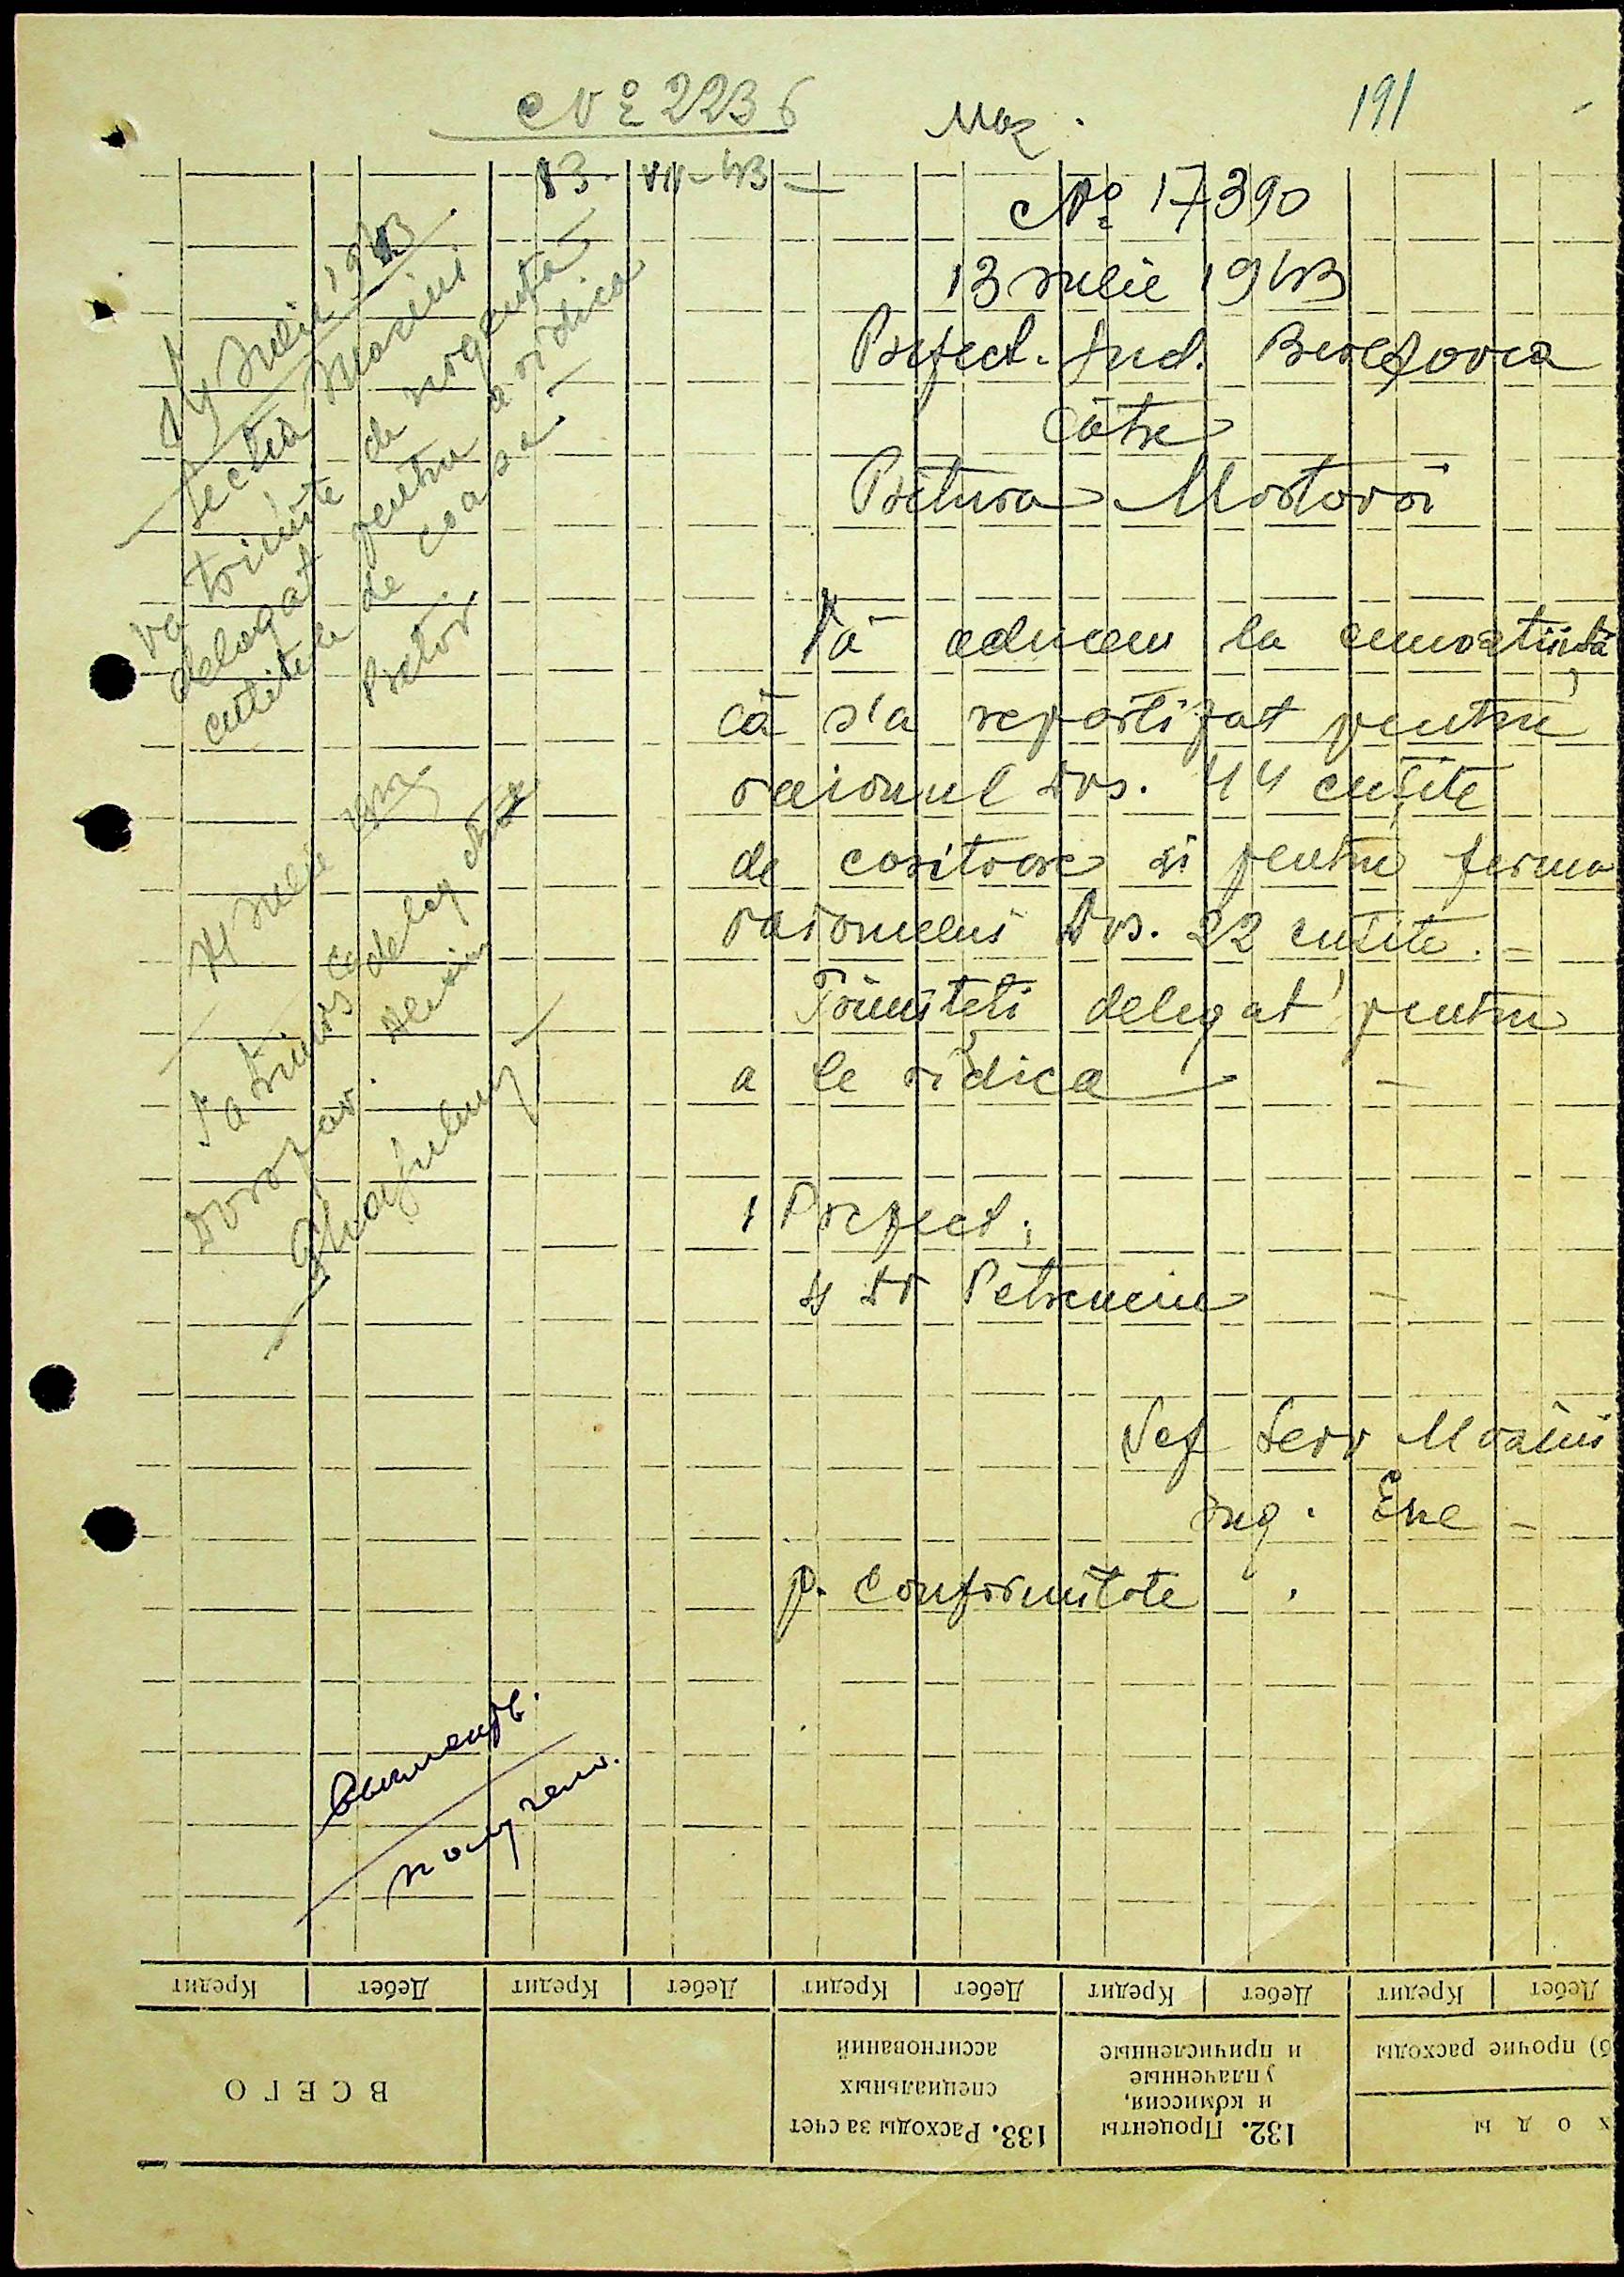 № 2236
191
13 VII-43
№ 17390
13 Iulie 1943
Prefect. Jud. Berezovca
Către
Pretura Mostovoi
Vă aducem la cunoștiință
că s'a repartizat pentru
raionul Dvs. 44 cuțite
de cositoare și pentru ferma
raionului Dvs. 22 cuțite.
Trimiteti delegat pentru
a le ridica
Prefect,
ss Dr Petrenciu
Șef Serv Mașini
Ing. Ene
p. conformitate
14 Iulie 1943
Sectia Masini
va trimite de urgență
delegat pentru a ridica
cutitele de coasă
Pretor
Iulie
S'a trimis cu deleg
Кредит Дебет Кредит Дебет Кредит Дебет Кредит Дебет Кредит Дебет
ВСЕГО
133. Расходы за счет
специальных
ассигнований
132. Проценты
и комиссия,
уплаченные
и причисленные
б) прочие расходы
х о д ы